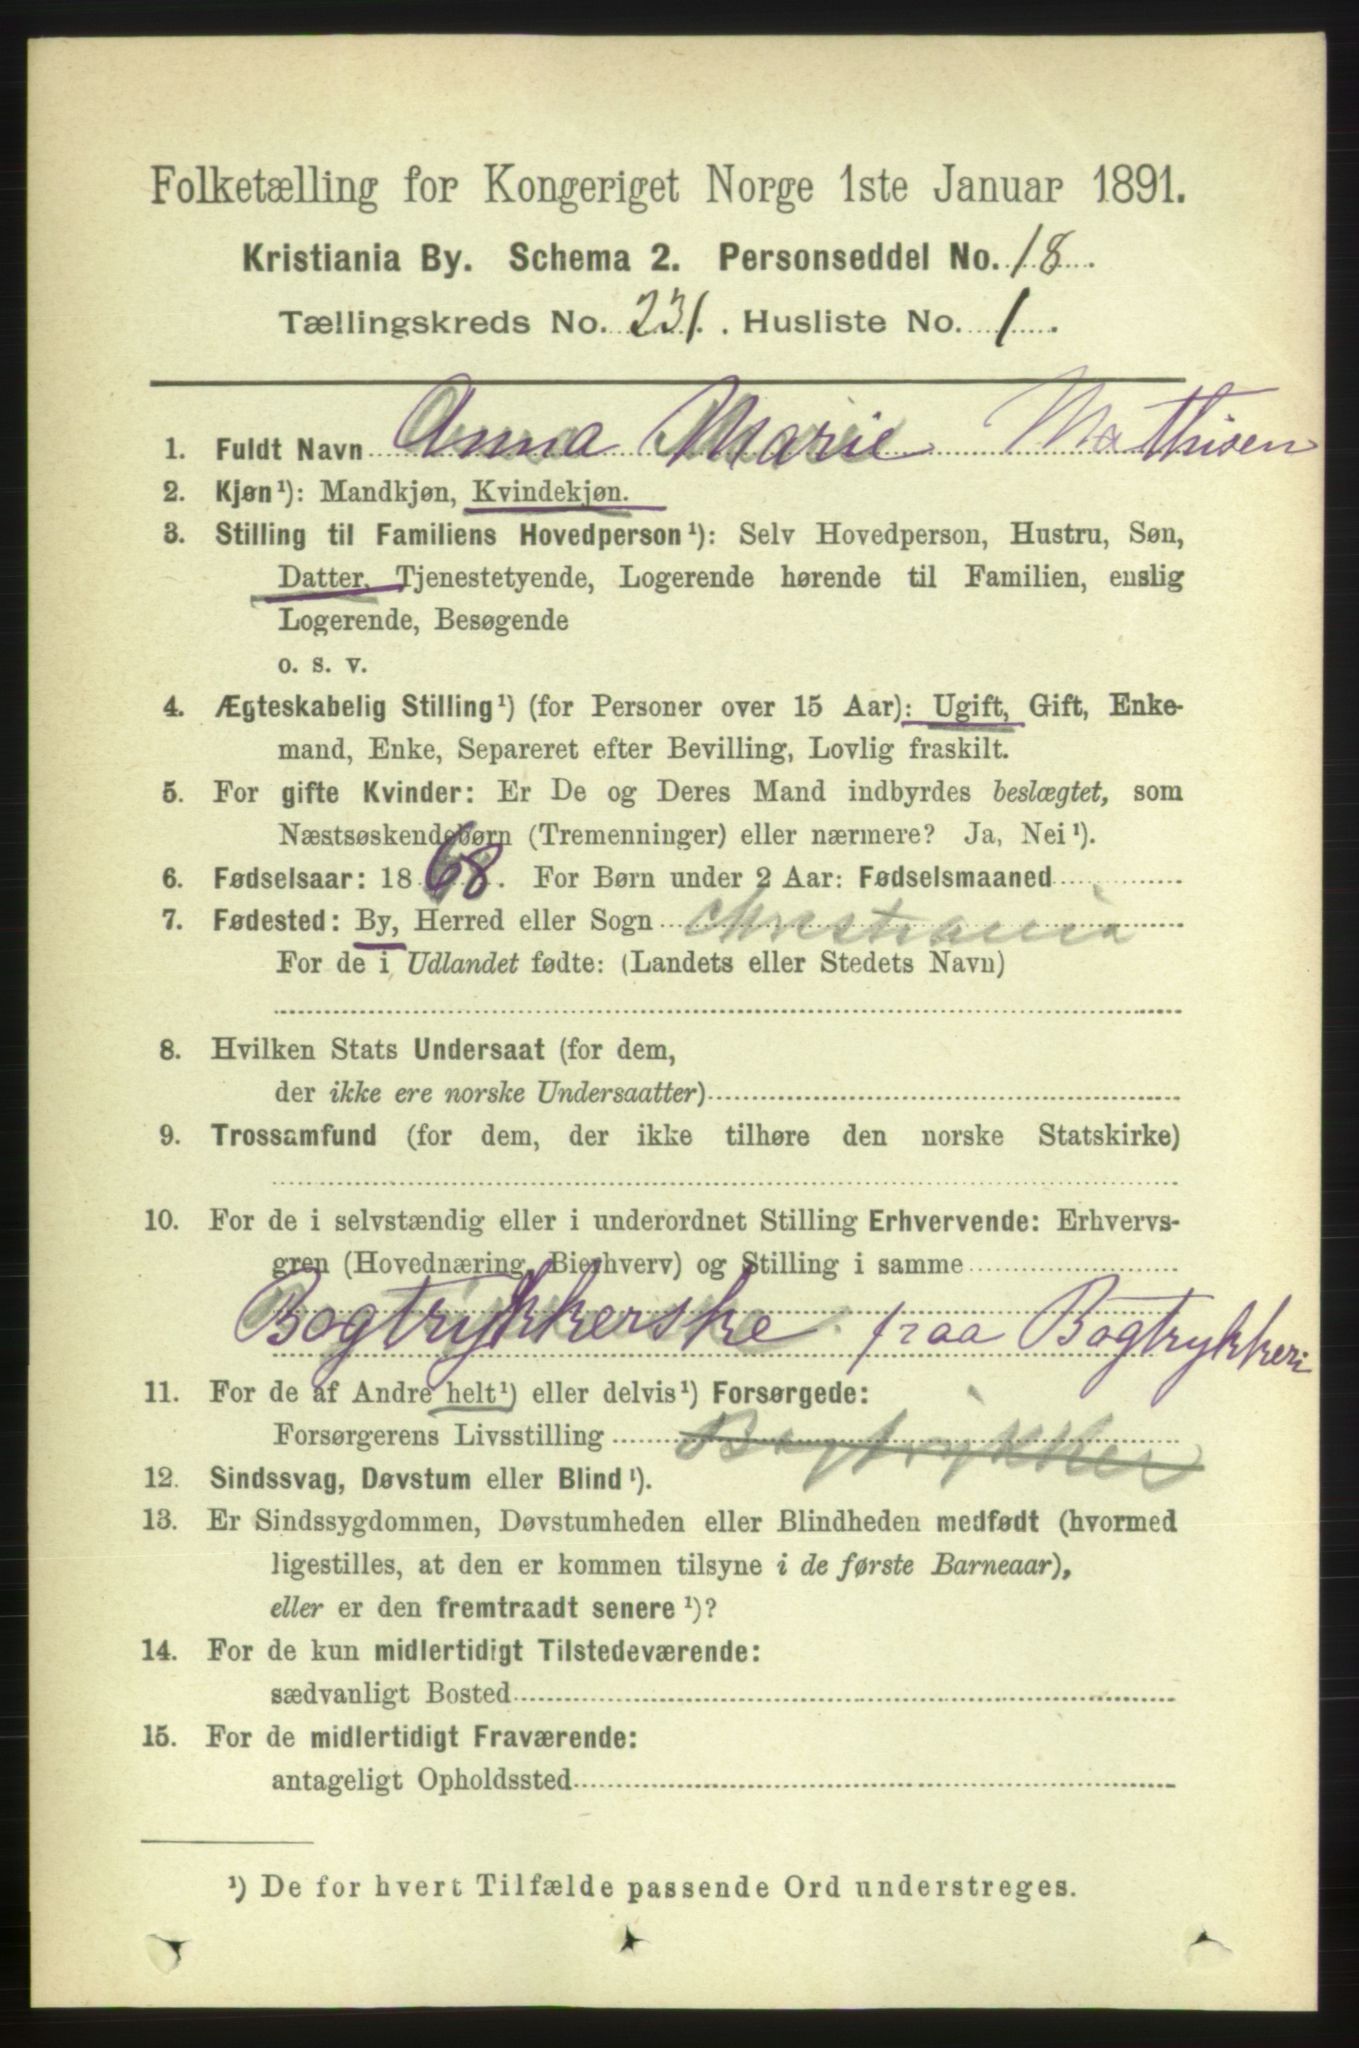 Folketælling for Kongeriget Norge 1ste Januar 1891.
Kristiania By. Schema 2. Personseddel No. 18.
Tællingskreds No. 231. Husliste No. 1.
1. Fuldt Navn Anna Marie Mathisen
2. Kjøn¹): Mandkjøn, Kvindekjøn.
3. Stilling til Familiens Hovedperson¹): Selv Hovedperson, Hustru, Søn,
Datter, Tjenestetyende, Logerende hørende til Familien, enslig
Logerende, Besøgende
o. s. v.
4. Ægteskabelig Stilling¹) (for Personer over 15 Aar): Ugift, Gift, Enke-
mand, Enke, Separeret efter Bevilling, Lovlig fraskilt.
5. For gifte Kvinder: Er De og Deres Mand indbyrdes beslægtet, som
Næstsøskendebørn (Tremenninger) eller nærmere? Ja, Nei¹).
6. Fødselsaar: 1868. For Børn under 2 Aar: Fødselsmaaned
7. Fødested: By, Herred eller Sogn Christiania
For de i Udlandet fødte: (Landets eller Stedets Navn)
8. Hvilken Stats Undersaat (for dem,
der ikke ere norske Undersaatter)
9. Trossamfund (for dem, der ikke tilhøre den norske Statskirke)
10. For de i selvstændig eller i underordnet Stilling Erhvervende: Erhvervs-
gren (Hovednæring, Bierhverv) og Stilling i samme
Bogtrykkerske fraa Bogtrykkeri
11. For de af Andre helt¹) eller delvis¹) Forsørgede:
Forsørgerens Livsstilling Bogtrykker
12. Sindssvag, Døvstum eller Blind¹).
13. Er Sindssygdommen, Døvstumheden eller Blindheden medfødt (hvormed
ligestilles, at den er kommen tilsyne i de første Barneaar),
eller er den fremtraadt senere¹)?
14. For de kun midlertidigt Tilstedeværende:
sædvanligt Bosted
15. For de midlertidigt Fraværende:
antageligt Opholdssted
¹) De for hvert Tilfælde passende Ord understreges.